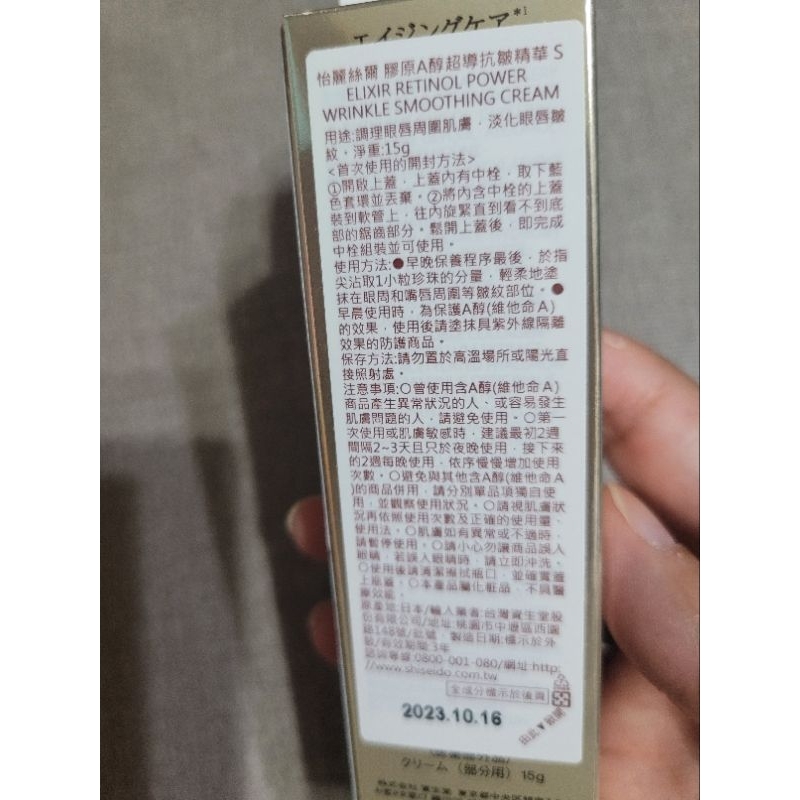 エイジングケア*1
怡麗絲爾 膠原A醇超導抗皺精華 S
ELIXIR RETINOL POWER
WRINKLE SMOOTHING CREAM
用途:調理眼唇周圍肌膚，淡化眼唇皺
紋。淨重:15g
<首次使用的開封方法>
①開啟上蓋，上蓋內有中栓，取下藍
色套環並丟棄。②將內含中栓的上蓋
裝到軟管上，往內旋緊直到看不到底
部的鋸齒部分。鬆開上蓋後，即完成
中栓組裝並可使用。
使用方法:●早晚保養程序最後，於指
尖沾取1小粒珍珠的分量，輕柔地塗
抹在眼周和嘴唇周圍等皺紋部位。●
早晨使用時，為保護A醇(維他命A)
的效果，使用後請塗抹具紫外線隔離
效果的防護商品。
保存方法:請勿置於高溫場所或陽光直
接照射處。
注意事項:○曾使用含A醇(維他命A)
商品產生異常狀況的人、或容易發生
肌膚問題的人，請避免使用。○第一
次使用或肌膚敏感時，建議最初2週
間隔2~3天且只於夜晚使用，接下來
的2週每晚使用，依序慢慢增加使用
次數。○避免與其他含A醇(維他命A
)的商品併用，請分別單品項獨自使
用，並觀察使用狀況。○請視肌膚狀
況再依照使用次數及正確的使用量、
使用法。○肌膚如有異常或不適時，
請暫停使用。○請小心勿讓商品誤入
眼睛，若誤入眼睛時，請立即沖洗。
○使用後請清潔擦拭瓶口，並確實蓋
上瓶蓋。○本產品屬化粧品，不具醫
療效能。
原產地:日本/輸入業者:台灣資生堂股
份有限公司/地址:桃園市中壢區西園
路148號/批號、製造日期:標示於外
裝/有效期間:3年
諮詢專線:0800-001-080/網址:http:
//www.shiseido.com.tw
全成分標示於後面
2023.10.16
クリーム（部分用）15g